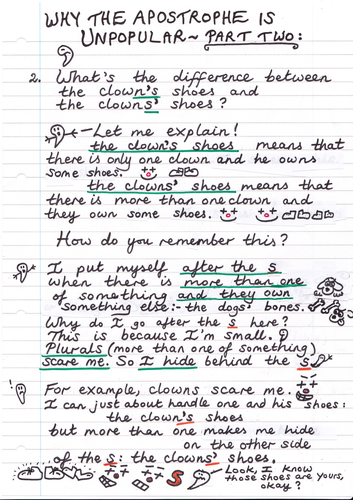 WHY THE APOSTROPHE IS
UNPOPULAR ~ PART TWO:
2. What's the difference between
the clown's shoes and
the clowns' shoes?
Let me explain!
the clown's shoes means that
there is only one clown and he owns
some shoes.
the clowns' shoes means that
there is more than one clown and
they own some shoes.
How do you remember this?
I put myself after the s
when there is more than one
of something and they own
something else:- the dogs' bones.
Why do I go after the s here?
This is because I'm small.
Plurals (more than one of something)
scare me. So I hide behind the s.
For example, clowns scare me.
I can just about handle one and his shoes:
the clown's shoes
but more than one makes me hide
on the other side
of the s: the clowns' shoes.
S
Look, I know
those shoes are yours,
okay?